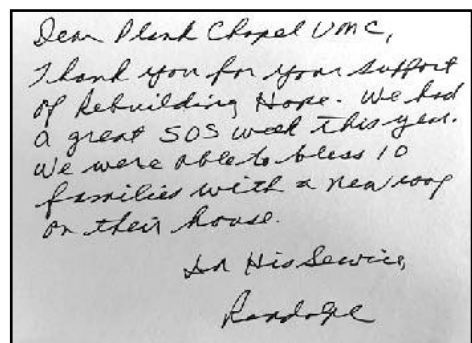 Dear Plank Chapel UMC,
Thank you for your support
of Rebuilding Hope. We had
a great SOS week this year.
We were able to bless 10
families with a new roof
on their house.
In His Service,
Randolph